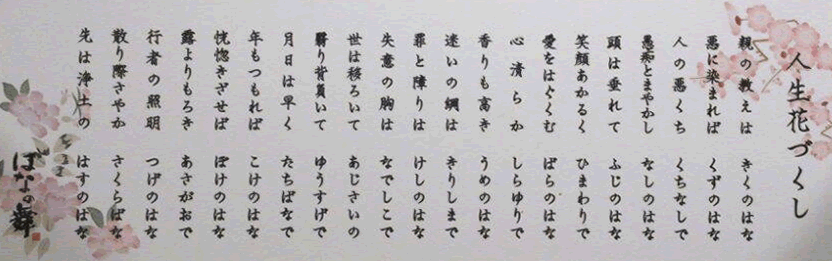 人生花づくし
親の教えは きくのはな
悪に染まれば くずのはな
人の悪くち くちなしで
愚痴とまやかし なしのはな
頭は垂れて ふじのはな
笑顔あかるく ひまわりで
愛をはぐくむ ばらのはな
心清らか しらゆりで
香りも高き うめのはな
迷いの綱は きりしまで
罪と障りは けしのはな
失意の胸は なでしこで
世は移ろいて あじさいの
翳り背負いて ゆうすげで
月日は早く たちばなで
年もつもれば こけのはな
恍惚きざせば ぼけのはな
露よりもろき あさがおで
行者の照明 つげのはな
散り際さやか さくらばな
先は浄土の はすのはな
はなの舞